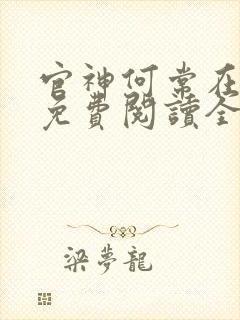 官神何常在
免費閱讀全
梁夢龍